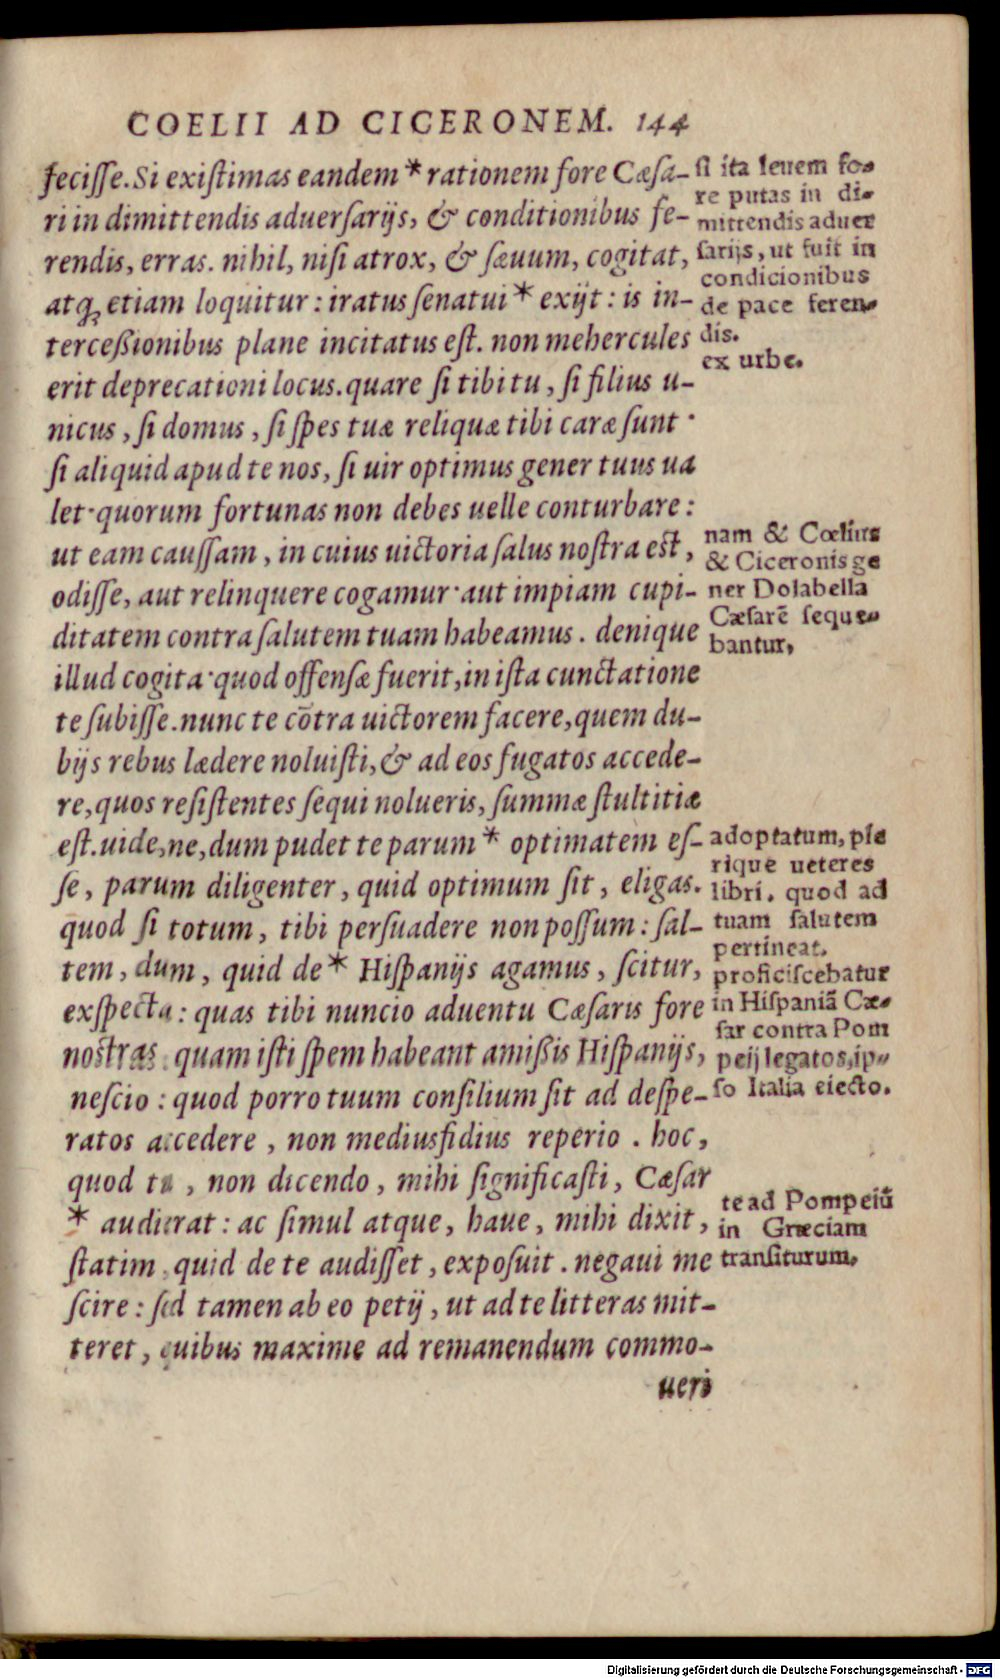 COELII AD CICERONEM. 144
fecisse. Si existimas eandem * rationem fore Cæsa-
ri in dimittendis aduersarijs, & conditionibus fe-
rendis, erras. nihil, nisi atrox, & sæuum, cogitat,
atq; etiam loquitur: iratus senatui * exijt: is in-
terceßionibus plane incitatus est. non mehercules
erit deprecationi locus. quare si tibi tu, si filius u-
nicus, si domus, si spes tuæ reliquæ tibi caræ sunt ·
si aliquid apud te nos, si uir optimus gener tuus ua
let· quorum fortunas non debes uelle conturbare:
ut eam caussam, in cuius uictoria salus nostra est,
odisse, aut relinquere cogamur· aut impiam cupi-
ditatem contra salutem tuam habeamus. denique
illud cogita· quod offensæ fuerit, in ista cunctatione
te subisse. nunc te cōtra uictorem facere, quem du-
bijs rebus lædere noluisti, & ad eos fugatos accede-
re, quos resistentes sequi nolueris, summæ stultitiæ
est. uide, ne, dum pudet te parum * optimatem es-
se, parum diligenter, quid optimum sit, eligas.
quod si totum, tibi persuadere non possum: sal-
tem, dum, quid de * Hispanijs agamus, scitur,
exspecta: quas tibi nuncio aduentu Cæsaris fore
nostras. quam isti spem habeant amißis Hispanijs,
nescio: quod porro tuum consilium sit ad despe-
ratos accedere, non mediusfidius reperio. hoc,
quod tu, non dicendo, mihi significasti, Cæsar
* audierat: ac simul atque, haue, mihi dixit,
statim, quid de te audisset, exposuit. negaui me
scire: sed tamen ab eo petij, ut ad te litteras mit-
teret, quibus maxime ad remanendum commo-
ueri
si ita leuem fo-
re putas in di-
mittendis aduer
sarijs, ut fuit in
condicionibus
de pace feren-
dis.
ex urbe.
nam & Cœlius
& Ciceronis ge
ner Dolabella
Cæsarē seque-
bantur,
adoptatum, ple
rique ueteres
libri. quod ad
tuam salutem
pertineat.
proficiscebatur
in Hispaniā Cæ-
sar contra Pom
peij legatos, ip-
so Italia eiecto.
te ad Pompeiū
in Græciam
transiturum.
Digitalisierung gefördert durch die Deutsche Forschungsgemeinschaft - DFG